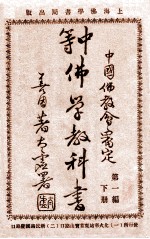 上海佛學書局出版
中國佛教會審定
第一編
下册
中等佛學教科書
善因著 太虛署